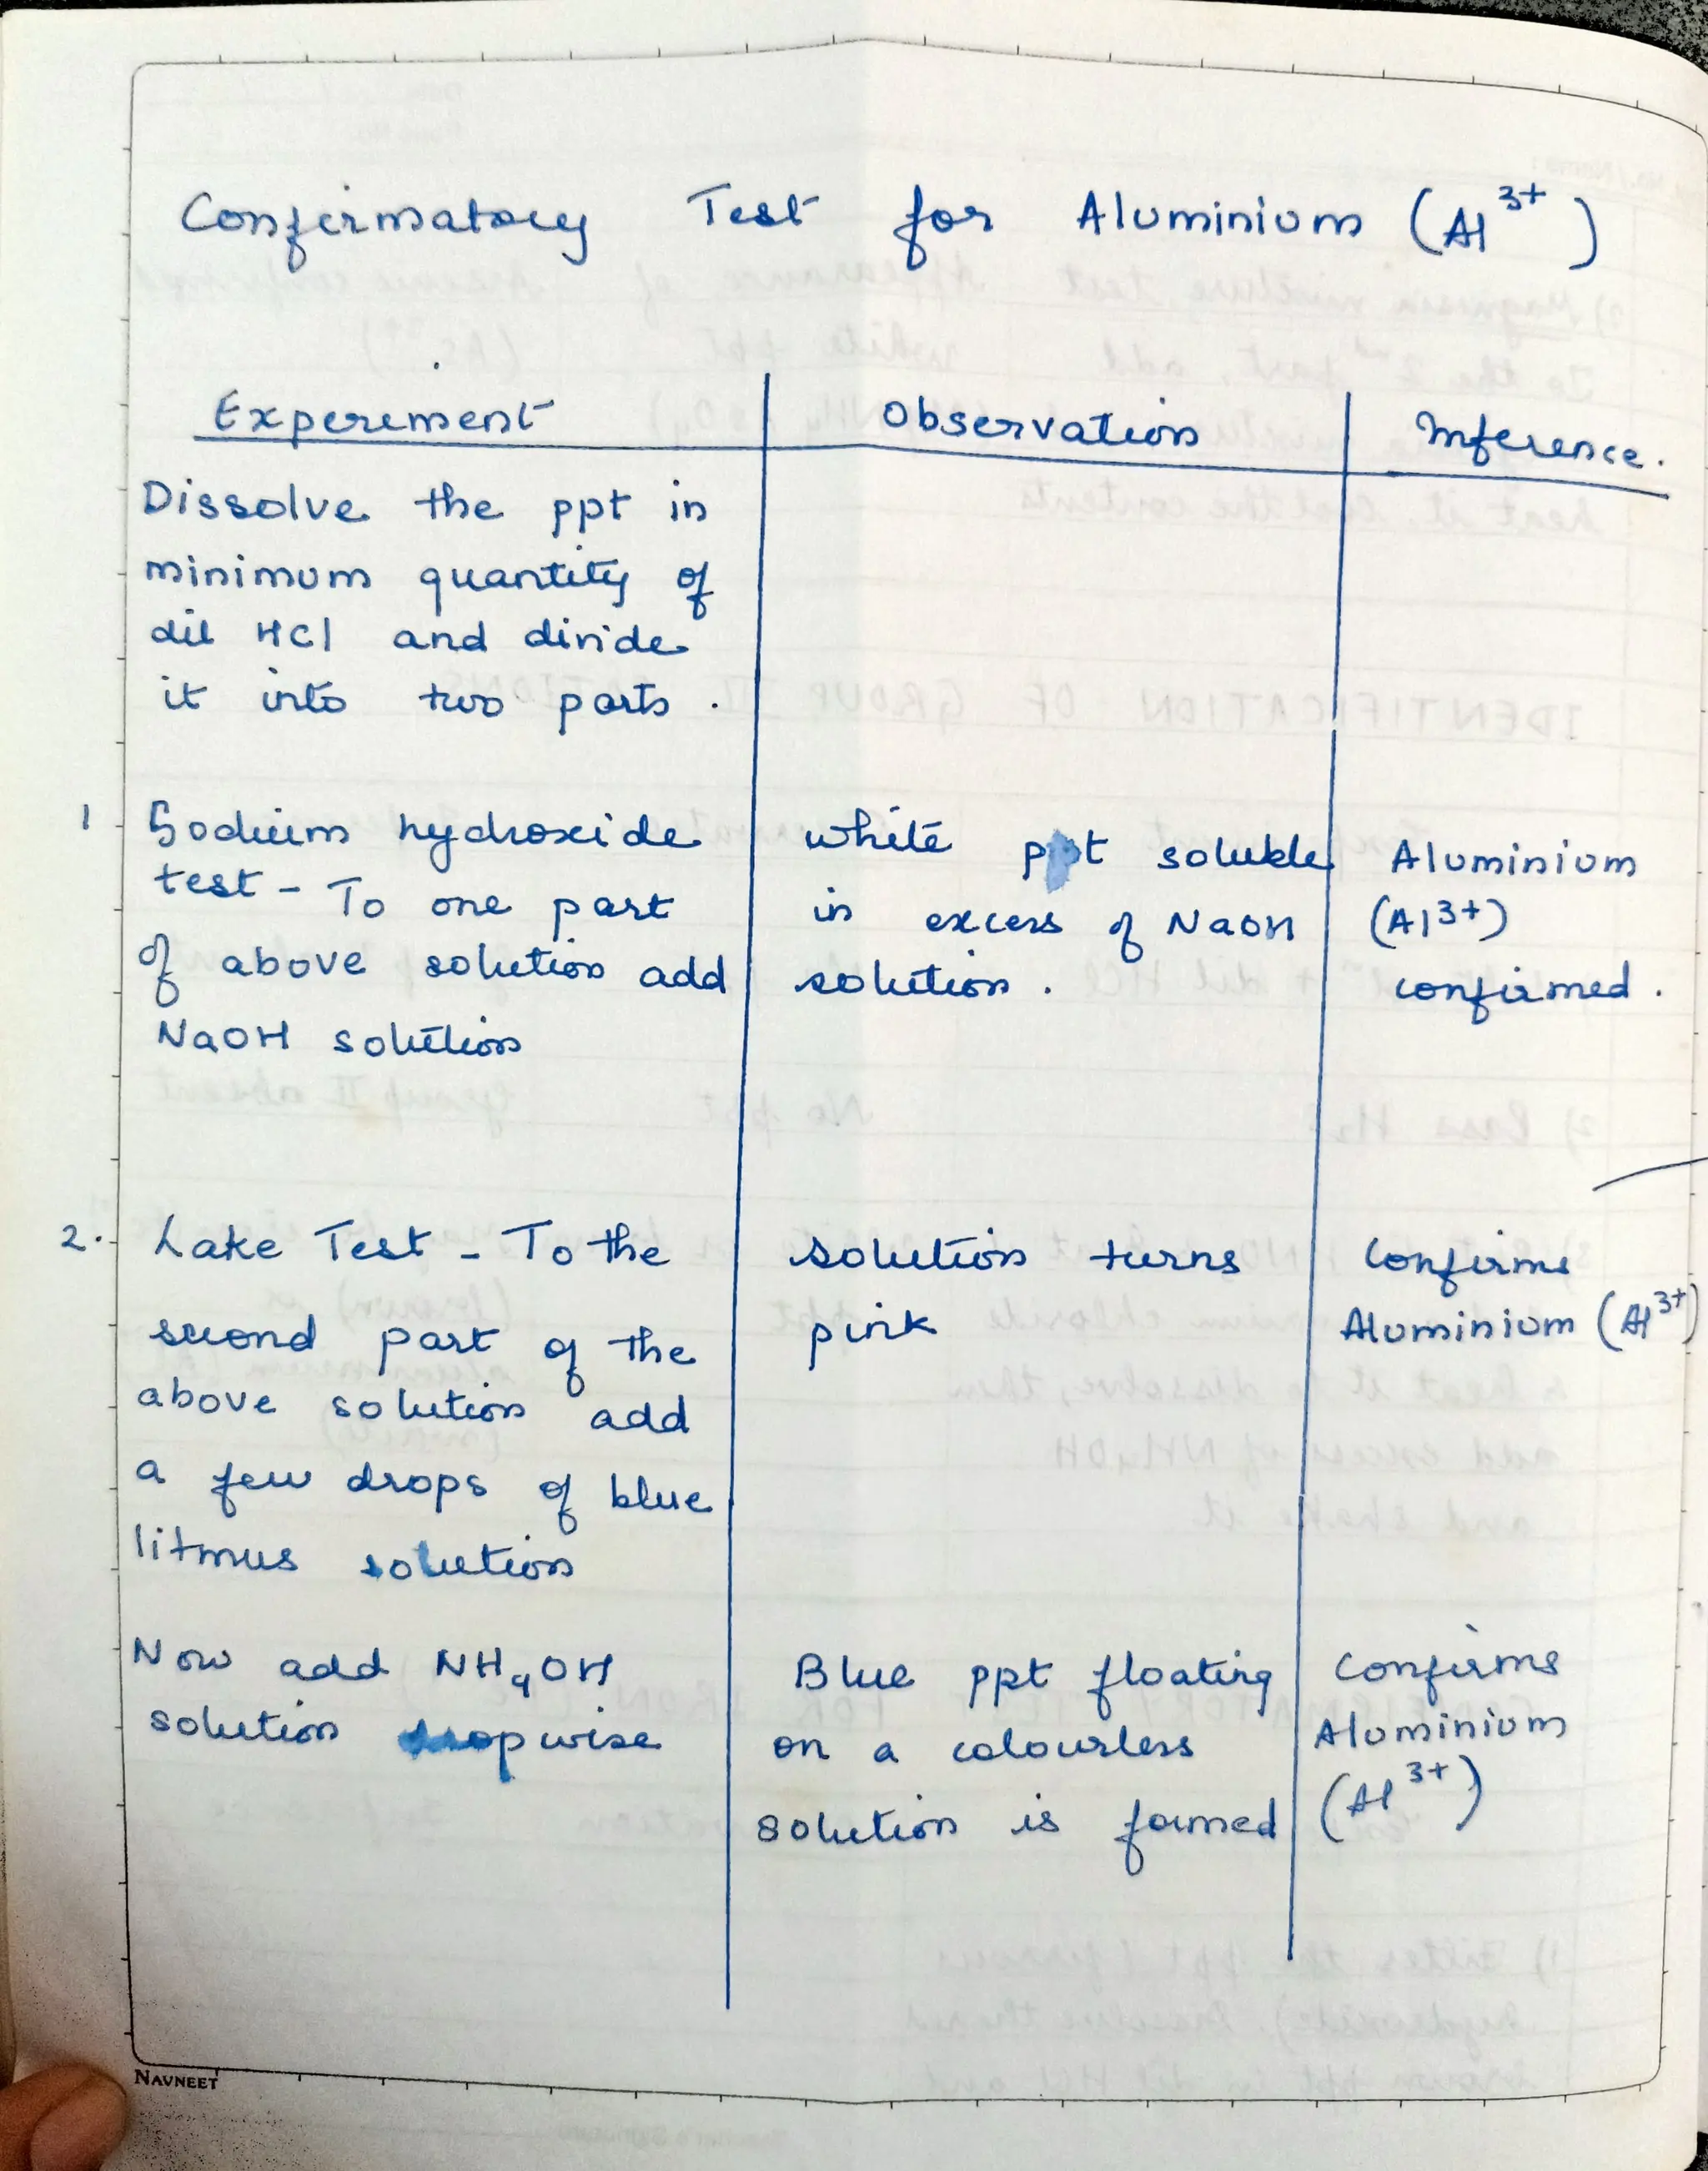 Confirmatory Test for Aluminium (Al³⁺)
Experiment
Observation
Inference.
Dissolve the ppt in
minimum quantity of
dil HCl and divide
it into two parts.
1 Sodium hydroxide
test - To one part
of above solution add
NaOH solution
white ppt soluble
in excess of NaOH
solution.
Aluminium
(Al³⁺)
confirmed.
2. Lake Test - To the
second part of the
above solution add
a few drops of blue
litmus solution
solution turns
pink
Confirms
Aluminium (Al³⁺)
Now add NH₄OH
solution dropwise
Blue ppt floating
on a colourless
solution is formed
Confirms
Aluminium
(Al³⁺)
NAVNEET